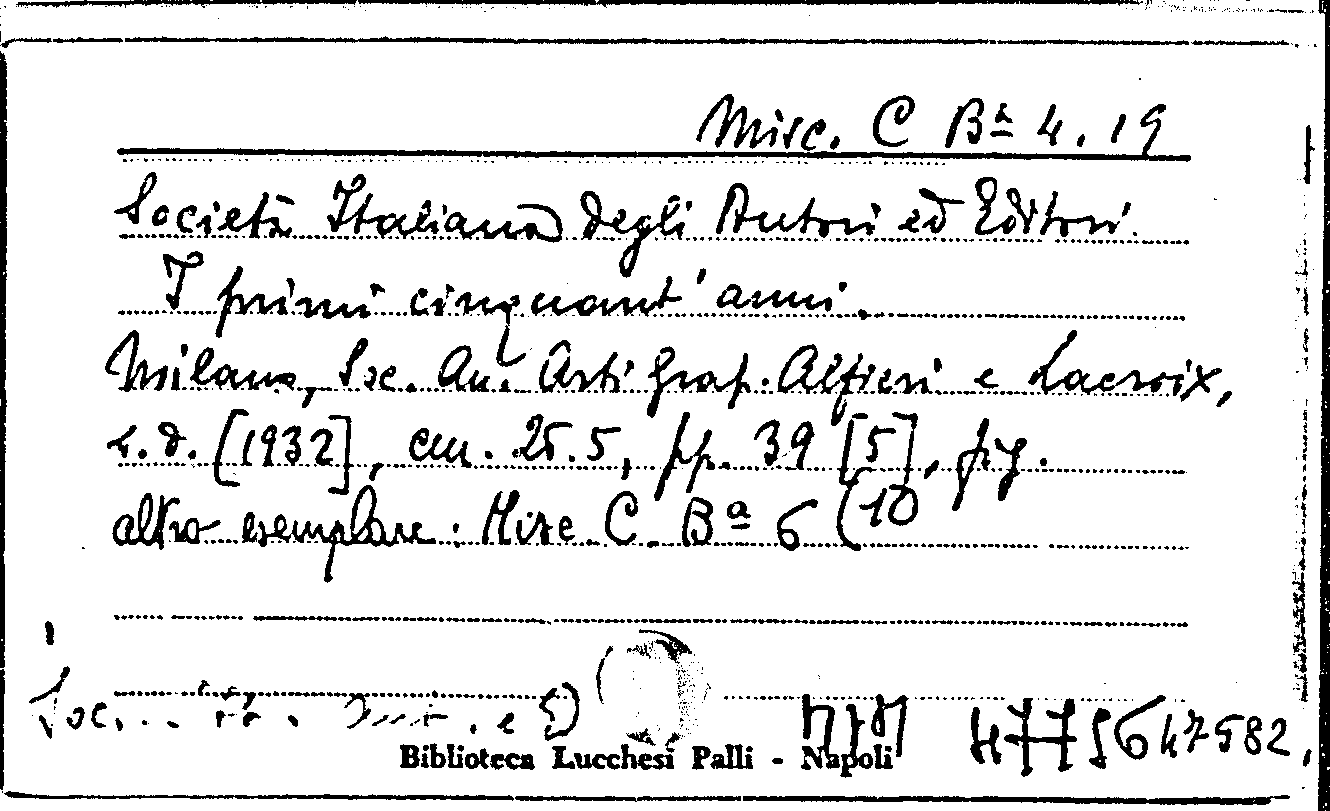 Misc. C Bª 4. 19
Società Italiana degli Autori ed Editori.
I primi cinquant'anni.
Milano, Soc. An. Arti Graf. Alfieri e Lacroix,
s.d. [1932], cm. 25.5, pp. 39 [5], fig.
altro esemplare: Misc C. Bª 6 (10
Soc.
Biblioteca Lucchesi Palli - Napoli
647582